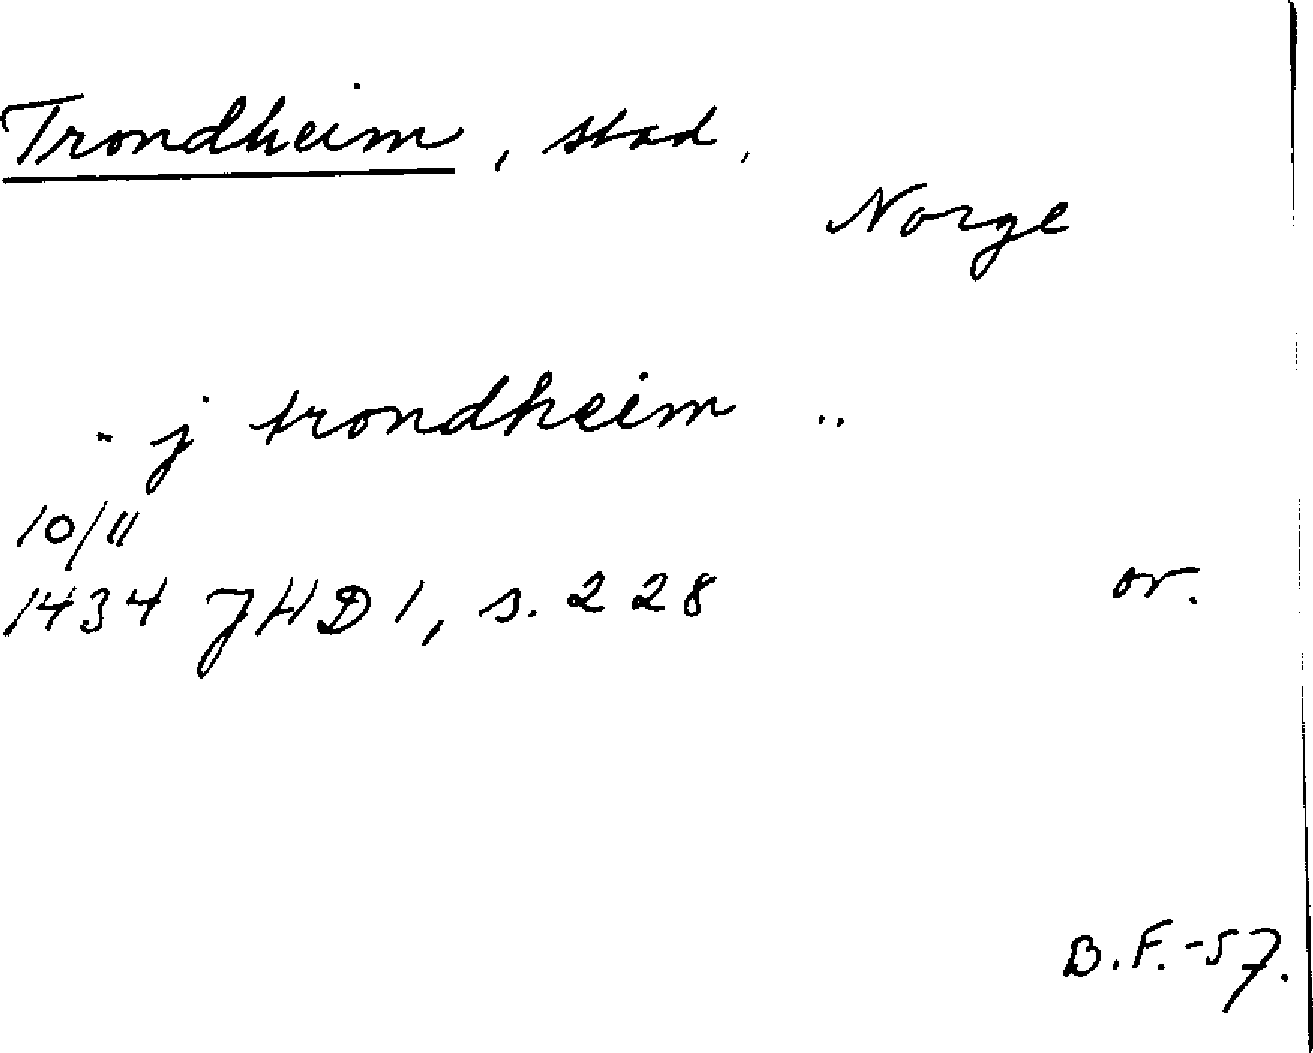 Trondheim, stad,
Norge
- j trondheim ..
10/11
1434 JHD 1, s. 228 or.
B.F.-57.